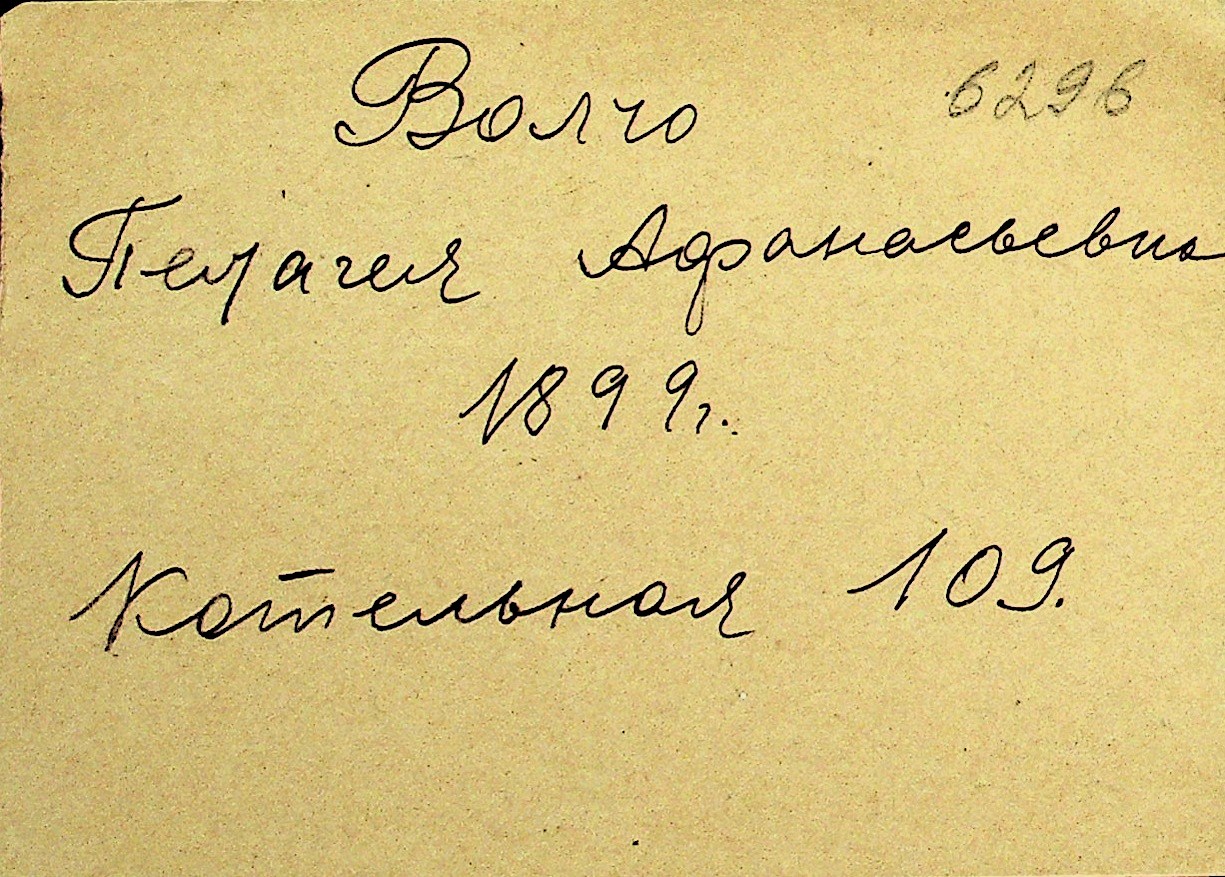 Волчо 6296
Пелагея Афанасьевна
1899г.
Котельная 109.